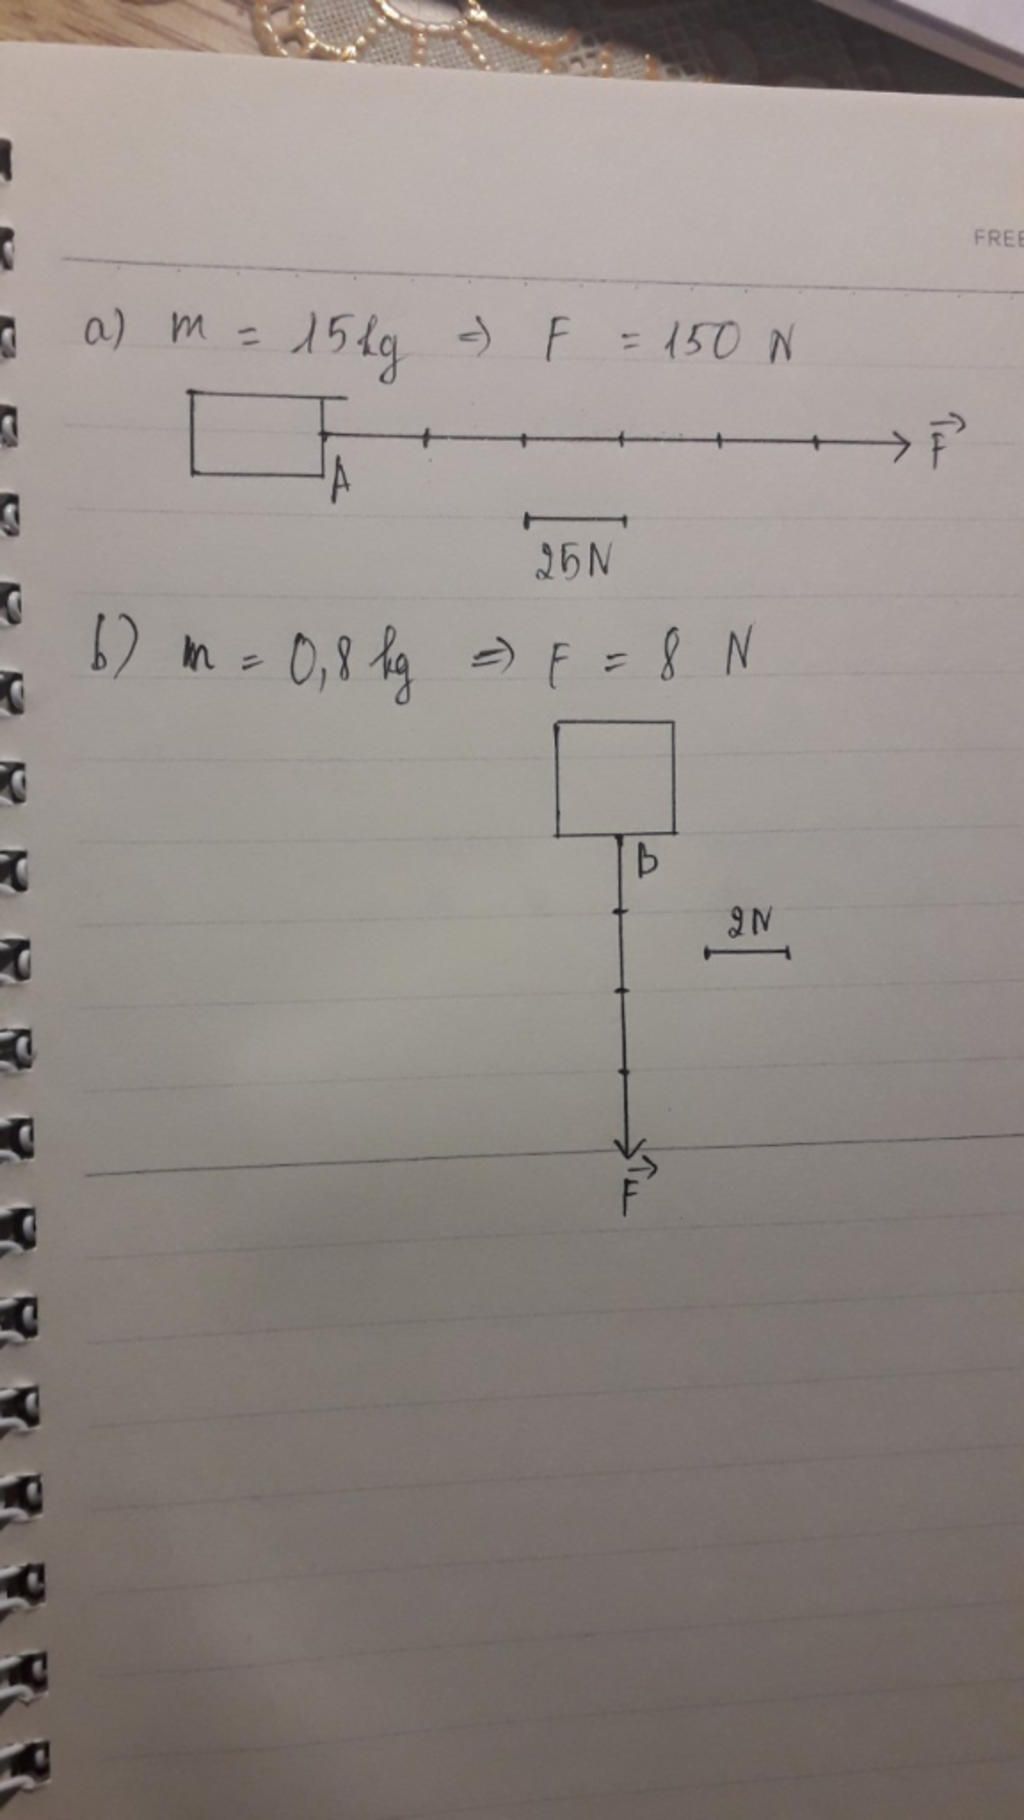 FREE
a) m = 15kg => F = 150 N
F
A
25N
b) m = 0,8 kg => F = 8 N
B
2N
F